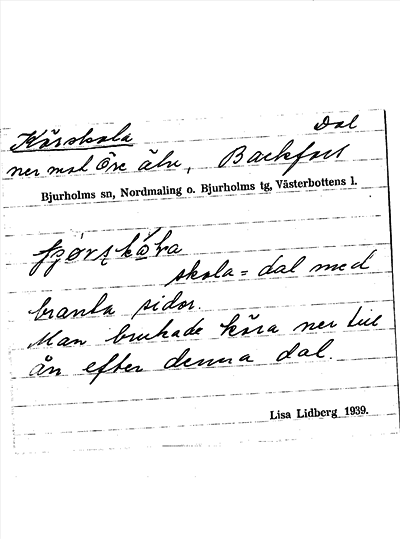 Dal
Körskola
ner mot Öre älv, Backfors
Bjurholms sn, Nordmaling o. Bjurholms tg, Västerbottens l.
skola = dal med
branta sidor.
Man brukade köra ner till
ån efter denna dal.
Lisa Lidberg 1939.